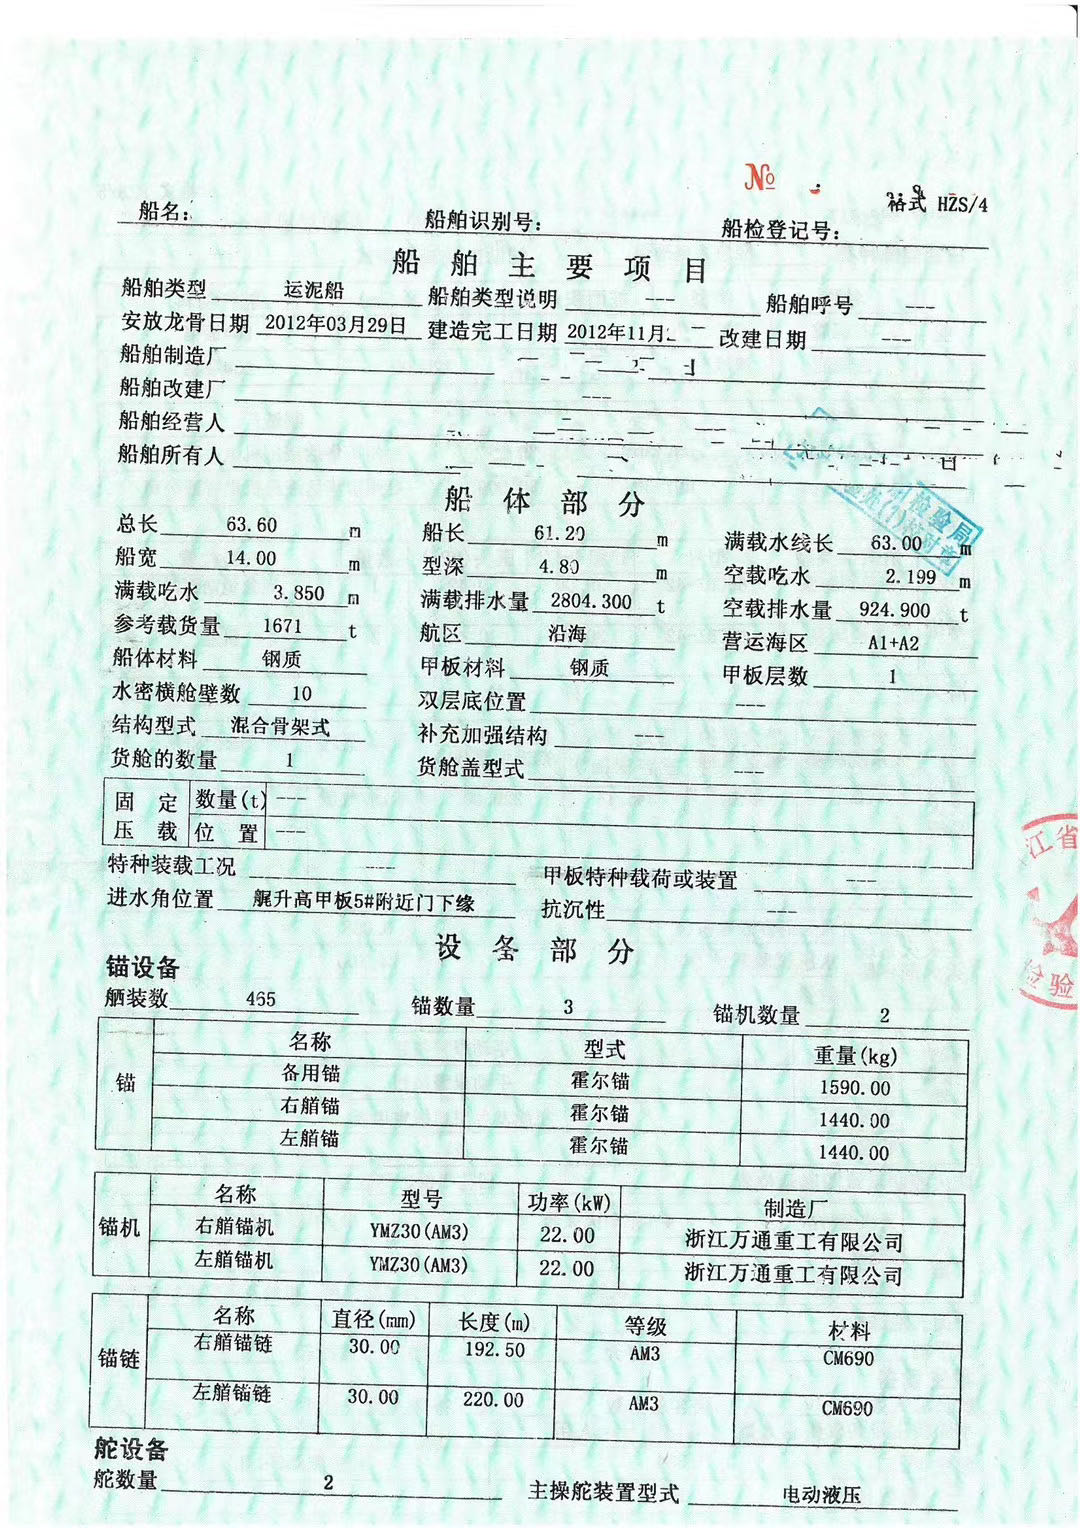 №
格式 HZS/4
船名: 船舶识别号: 船检登记号:
船舶主要项目
船舶类型 运泥船 船舶类型说明 --- 船舶呼号 ---
安放龙骨日期 2012年03月29日 建造完工日期 2012年11月 改建日期 ---
船舶制造厂
船舶改建厂 ---
船舶经营人
船舶所有人
检验局
船体部分
总长 63.60 m 船长 61.20 m 满载水线长 63.00 m
船宽 14.00 m 型深 4.80 m 空载吃水 2.199 m
满载吃水 3.850 m 满载排水量 2804.300 t 空载排水量 924.900 t
参考载货量 1671 t 航区 沿海 营运海区 A1+A2
船体材料 钢质 甲板材料 钢质 甲板层数 1
水密横舱壁数 10 双层底位置 ---
结构型式 混合骨架式 补充加强结构 ---
货舱的数量 1 货舱盖型式 ---
固定压载 数量(t) ---
位置 ---
特种装载工况 --- 甲板特种载荷或装置 ---
进水角位置 艉升高甲板5#附近门下缘 抗沉性 ---
江省
检验
设备部分
锚设备
舾装数 465 锚数量 3 锚机数量 2
锚 名称 型式 重量(kg)
备用锚 霍尔锚 1590.00
右艏锚 霍尔锚 1440.00
左艏锚 霍尔锚 1440.00
锚机 名称 型号 功率(kW) 制造厂
右艏锚机 YMZ30(AM3) 22.00 浙江万通重工有限公司
左艏锚机 YMZ30(AM3) 22.00 浙江万通重工有限公司
锚链 名称 直径(mm) 长度(m) 等级 材料
右艏锚链 30.00 192.50 AM3 CM690
左艏锚链 30.00 220.00 AM3 CM690
舵设备
舵数量 2 主操舵装置型式 电动液压